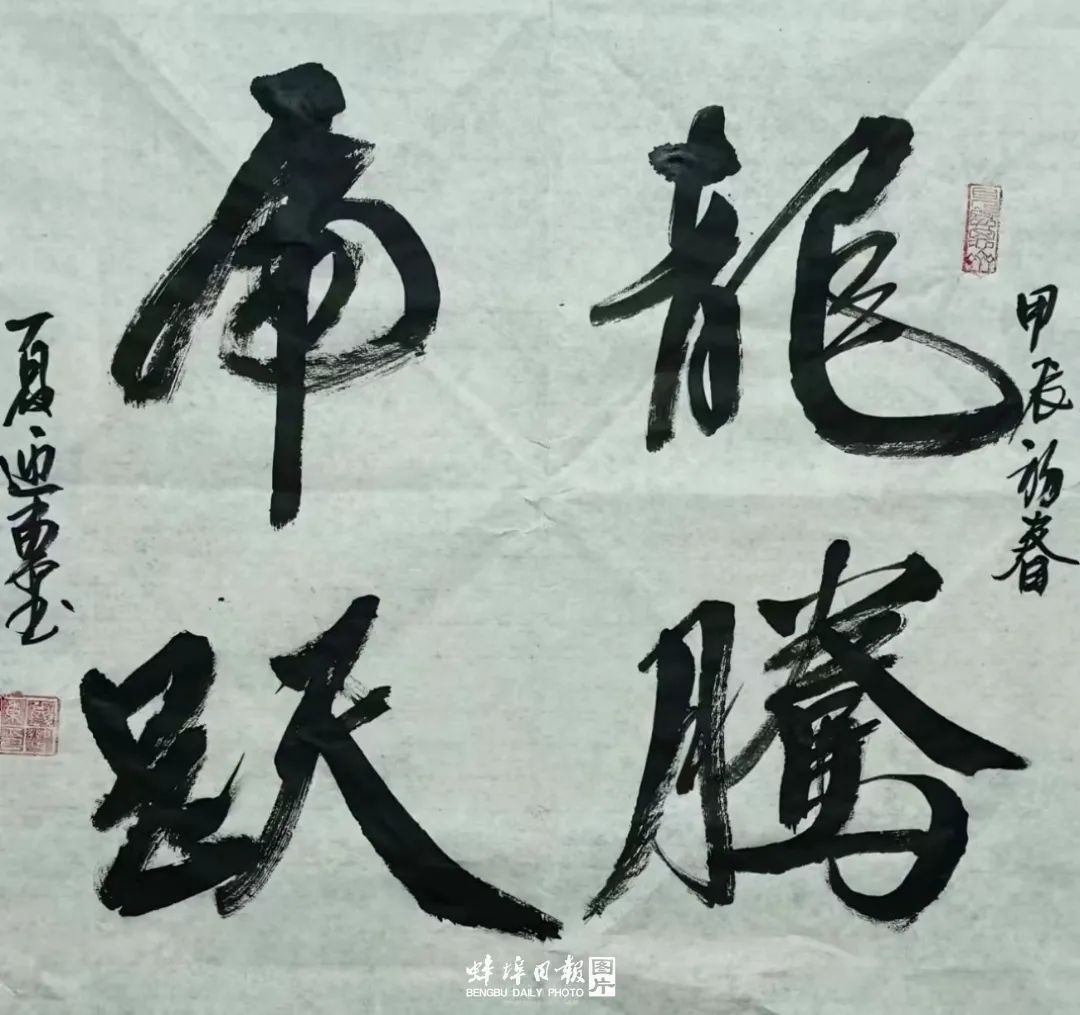 甲辰初春
龍騰
虎跃
夏迎东书
蚌埠日報 图片
BENGBU DAILY PHOTO